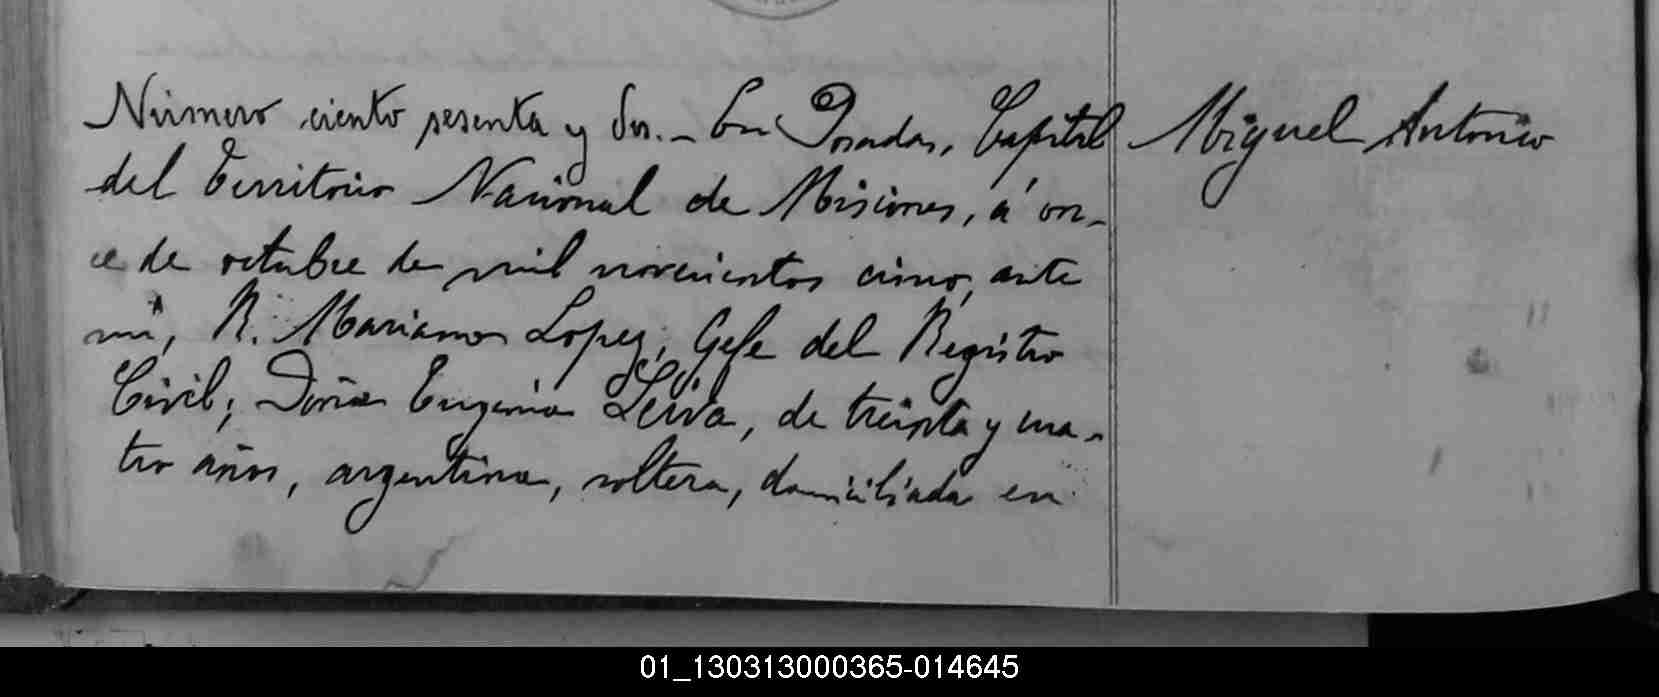 Número ciento sesenta y dos.- En Posadas, Capital
del Territorio Nacional de Misiones, á on-
ce de octubre de mil novecientos cinco, ante
mi, R. Mariano Lopez, Gefe del Registro
Civil; Doña Eugenia Leiva, de treinta y cua-
tro años, argentina, soltera, domiciliada en
Miguel Antonio
01_130313000365-014645